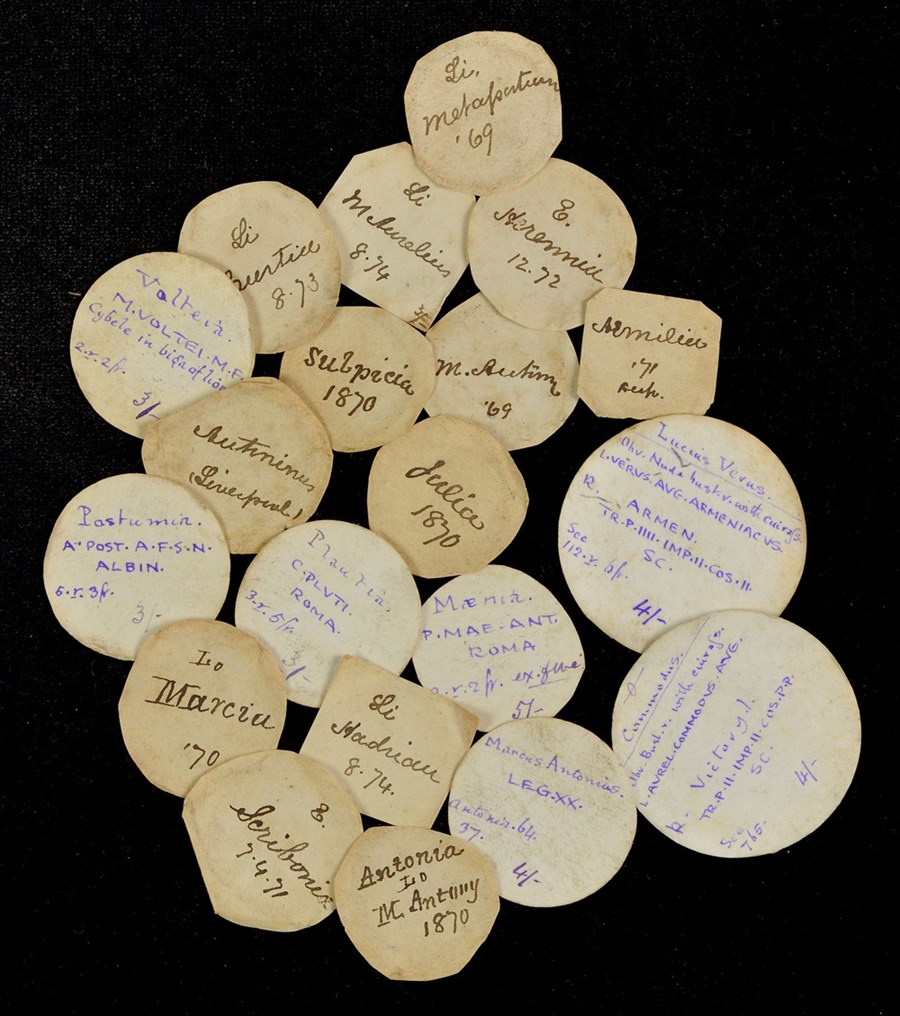 Li.
Metapontum
'69
Li
M Aurelius
8.74
3/-
E.
Herennia
12.72
Li
8.73
Volteia.
M.VOLTEI.M.F.
Cybele in biga of lions
2.r.2fr.
3/-
Sulpicia
1870
M. Antony
'69
Aemilia
'71
Antoninus
(Liverpool)
Julia
1870
Lucius Verus.
Obv. Nude bust r. with cuirass.
L.VERVS.AVG.ARMENIACVS.
R.
ARMEN.
TR.P.IIII.IMP.II.COS.II.
SC.
See
112.r. fr.
4/-
Postumia.
A. POST. A.F.S.N.
ALBIN.
5.r.3fr.
3/-
Plautia.
C.PLVTI.
ROMA.
3.r.5fr.
3/-
Mænia.
P.MAE.ANT.
ROMA
r.2fr.
5/-
Commodus.
Obv. Bust. r. with cuirass.
L.AVREL.COMMODVS.AVG.
R. Victory l.
TR.P.II.IMP.II.COS.P.P.
SC
4/-
See
765.
Lo
Marcia
'70
Li
Hadrian
8.74.
Marcus Antonius.
LEG.XX.
Antonia.64.
37.
4/-
E.
Scribonia
7.4.71
Antonia
Lo
M. Antony
1870